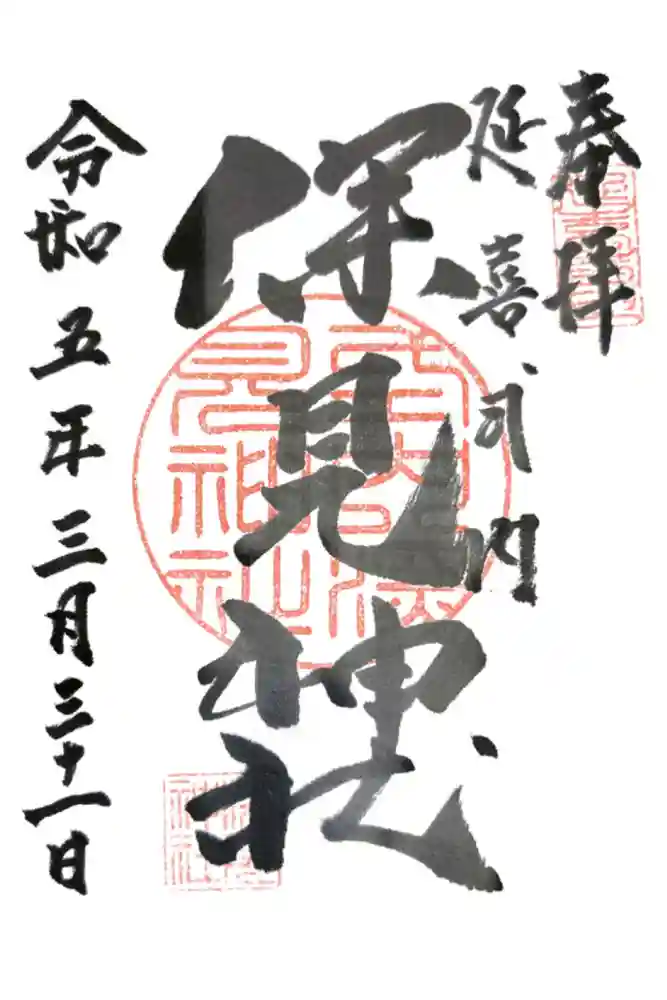 奉拝
延喜式内
保見神社
令和五年三月三十一日